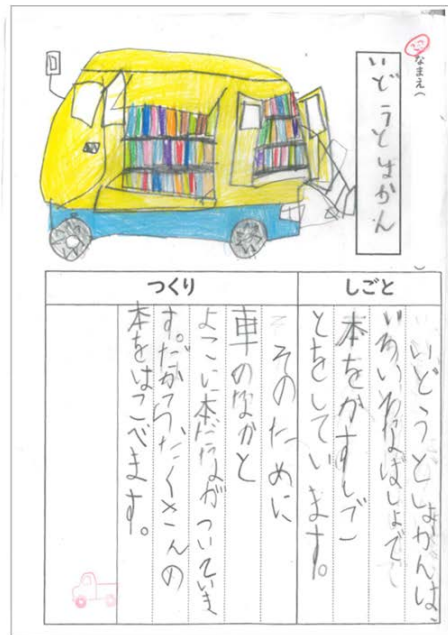 なまえ（　）
いどうとしょかん
しごと
いどうとしょかんは、
いろいろなばしょで
本をかすしご
とをしています。
つくり
そのために
車のなかと
よこに本だながついていま
す。だから、たくさんの
本をはこべます。